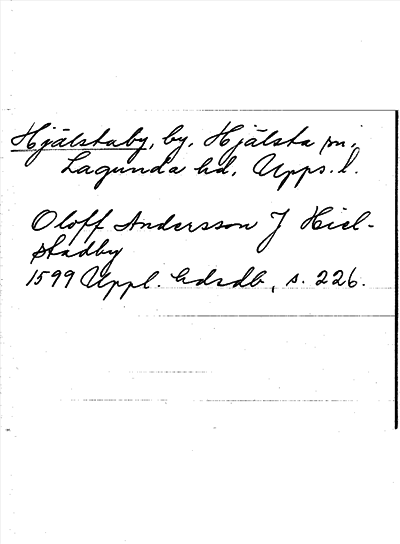 Hjälstaby, by, Hjälsta sn,
Lagunda hd, Upps. l.
Oloff Andersson J Hiel-
stadby
1599 Uppl. Edsdb, s. 226.